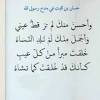 حسان بن ثابت في مدح رسول الله
وأحسن منك لم تر قط عيني
وأجمل منك لم تلد النساء
خلقت مبرأ من كل عيب
كأنك قد خلقت كما تشاء